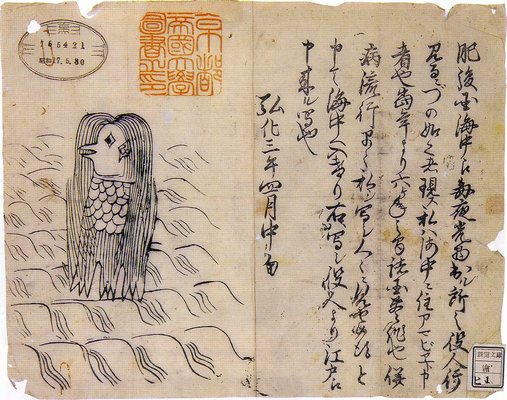 肥後国海中え毎夜光物出ル所之役人行
見るニづの如之者現ス私ハ海中ニ住アマビヱト申
者也当年より六ケ年之間諸国豊作也併
病流行早々私シ写シ人々ニ見せ候得と
申て海中へ入けり右ハ写シ役人より江戸え
申来ル写也
弘化三年四月中旬
京都
帝國大學
圖書之印
昭和17.6.30
新聞文庫